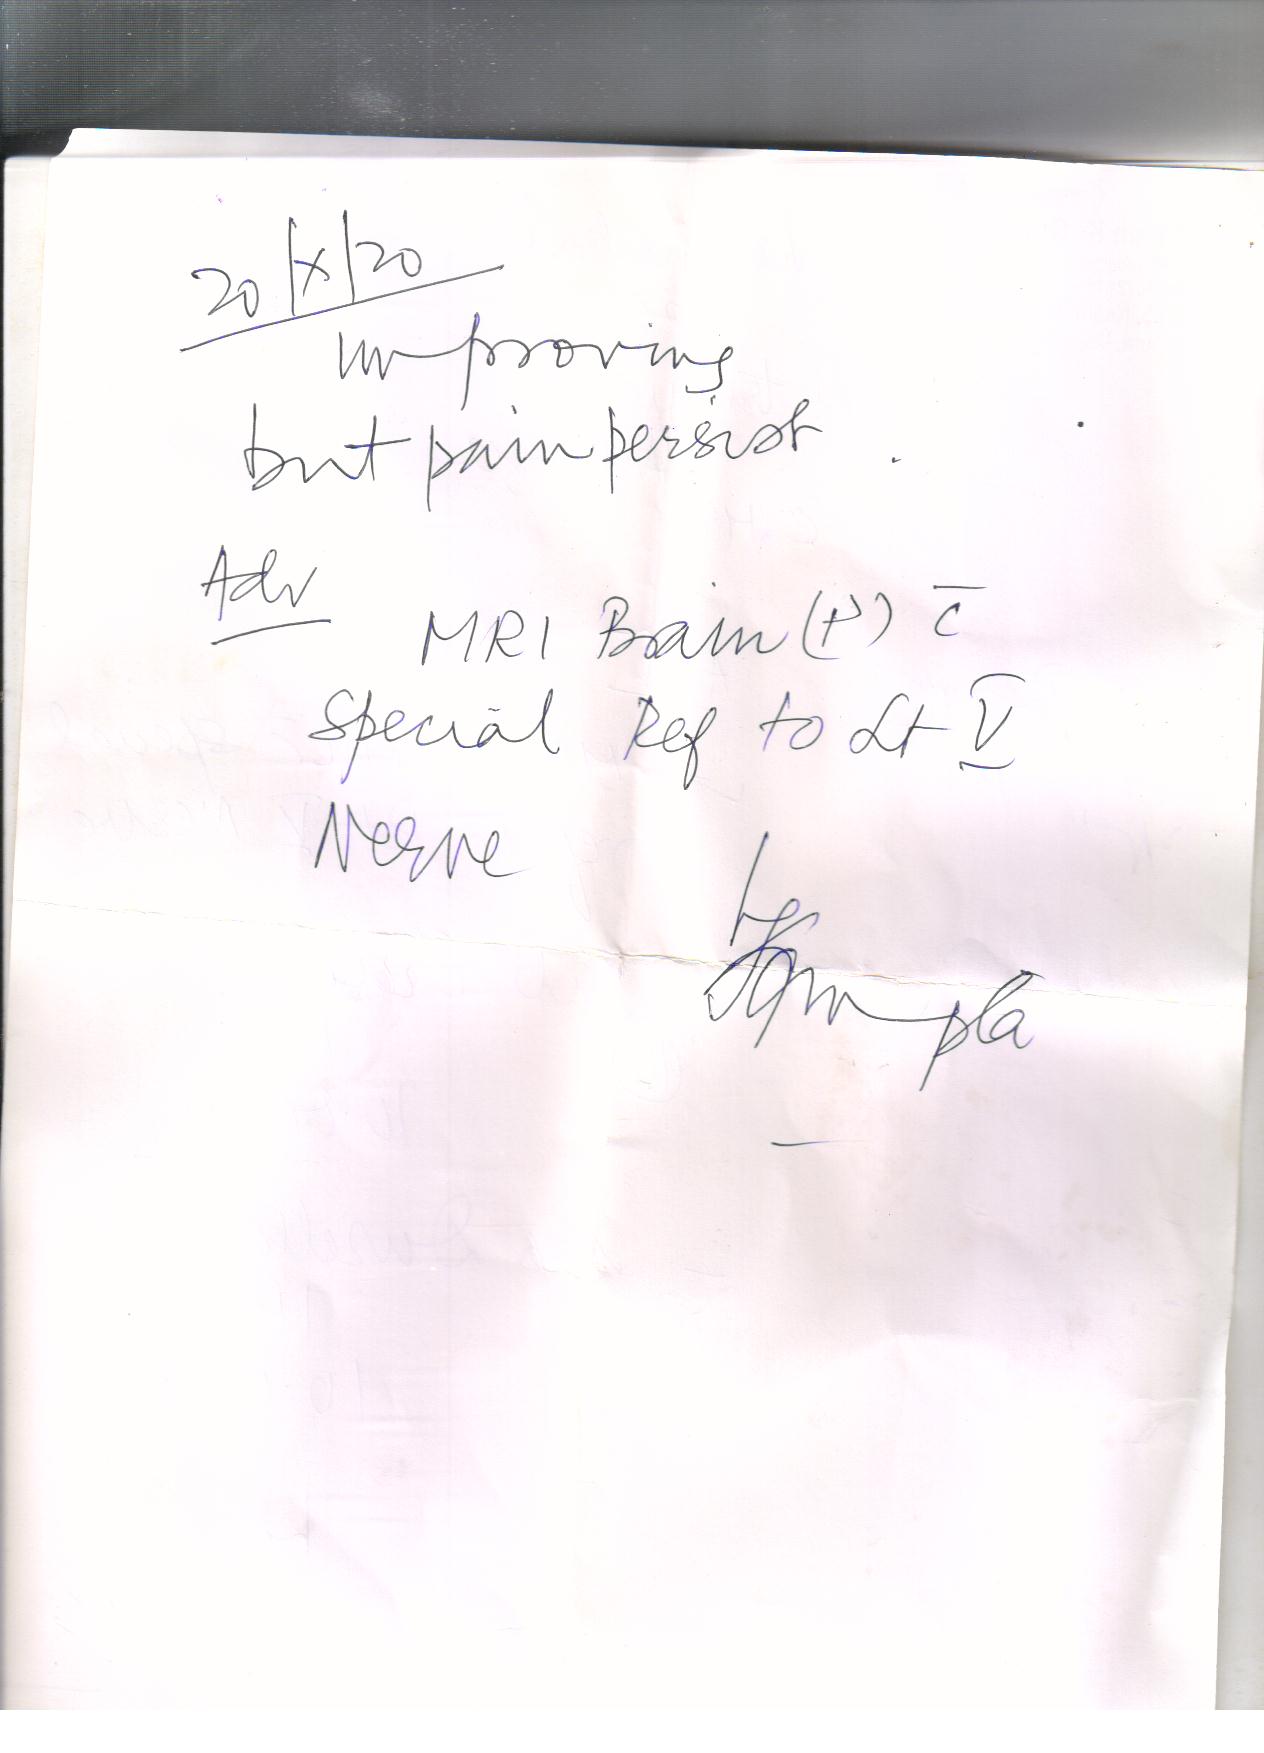 20/X/20
improving
but pain persist.
Adv
MRI Brain (P) c̄
Special Ref to Lt V
Nerve